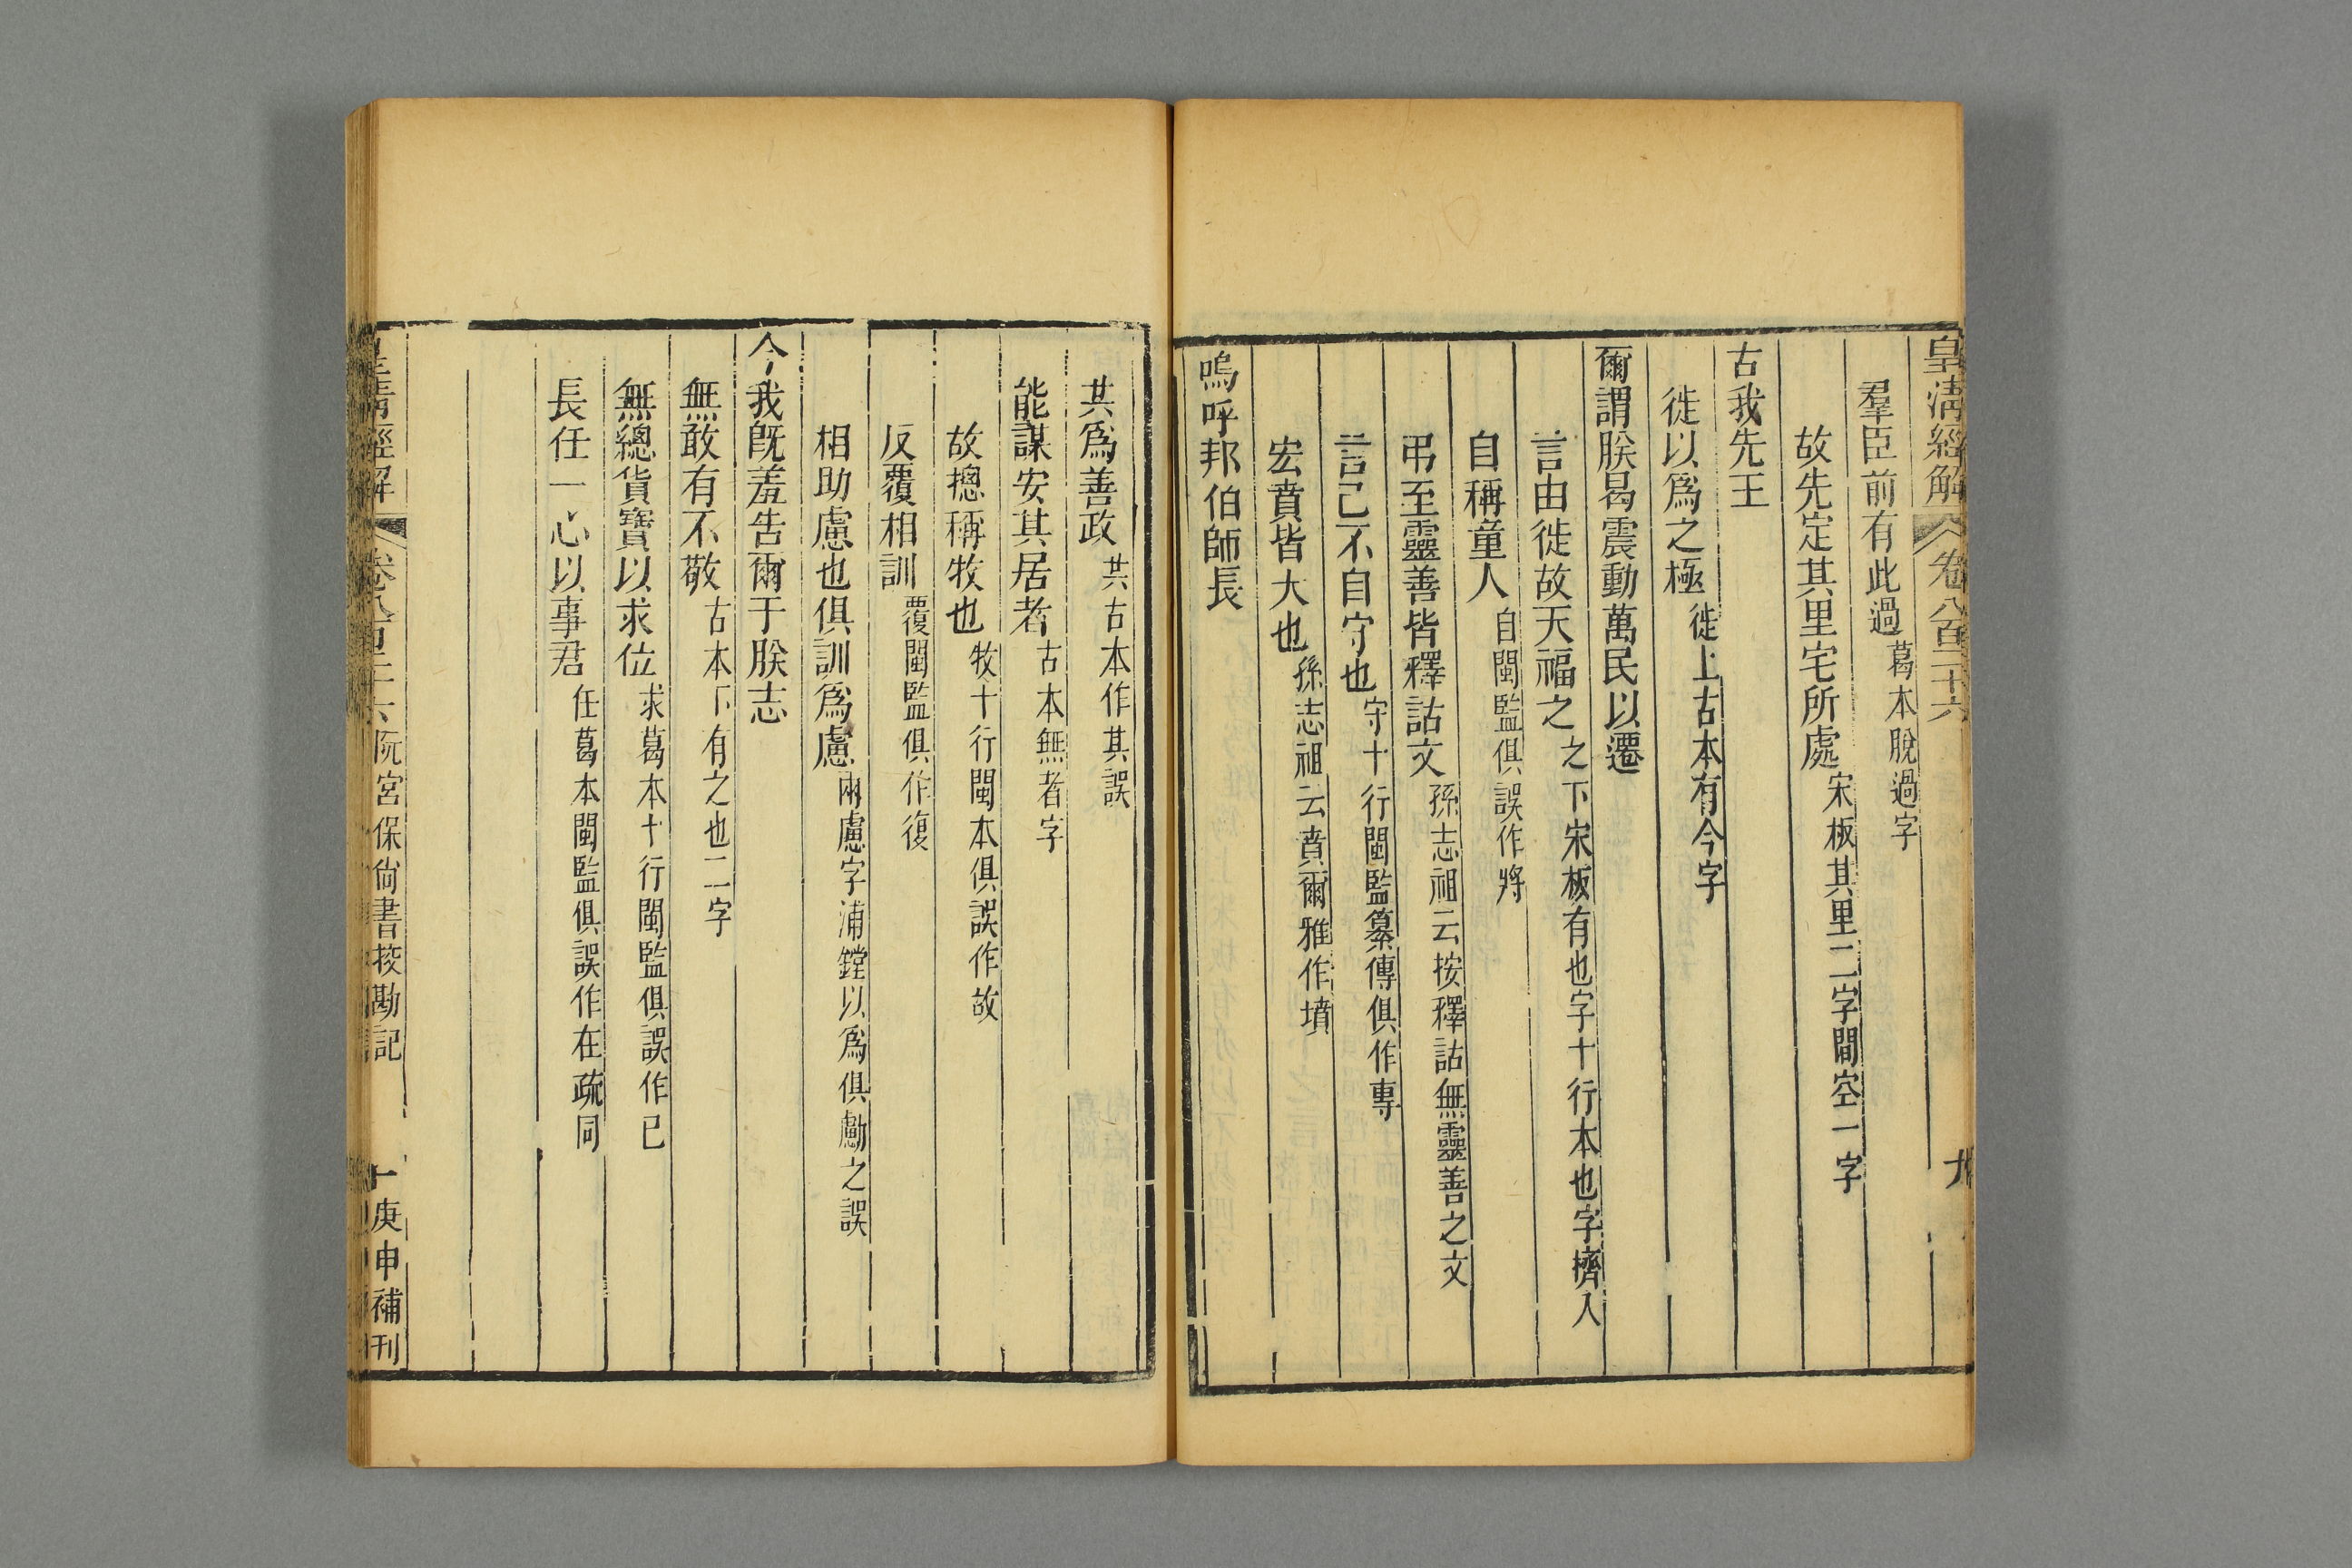 皇淸經解 卷八百二十六 九
羣臣前有此過 葛本脫過字
故先定其里宅所處 宋板其里二字間空一字
古我先王
徙以爲之極 徙上古本有今字
爾謂朕曷震動萬民以遷
言由徙故天福之 之下宋板有也字十行本也字擠入
自稱童人 自閩監俱誤作將
弔至靈善皆釋詁文 孫志祖云按釋詁無靈善之文
言己不自守也 守十行閩監纂傳俱作專
宏賁皆大也 孫志祖云賁爾雅作墳
嗚呼邦伯師長
共爲善政 共古本作其誤
能謀安其居者 古本無者字
故摠稱牧也 牧十行閩本俱誤作故
反覆相訓 覆閩監俱作復
相助慮也俱訓爲慮 兩慮字浦鏜以爲俱勴之誤
今我旣羞告爾于朕志
無敢有不敬 古本下有之也二字
無總貨寶以求位 求葛本十行閩監俱誤作已
長任一心以事君 任葛本閩監俱誤作在疏同
皇淸經解 卷八百二十六 阮宮保尙書挍勘記 十 庚申補刊